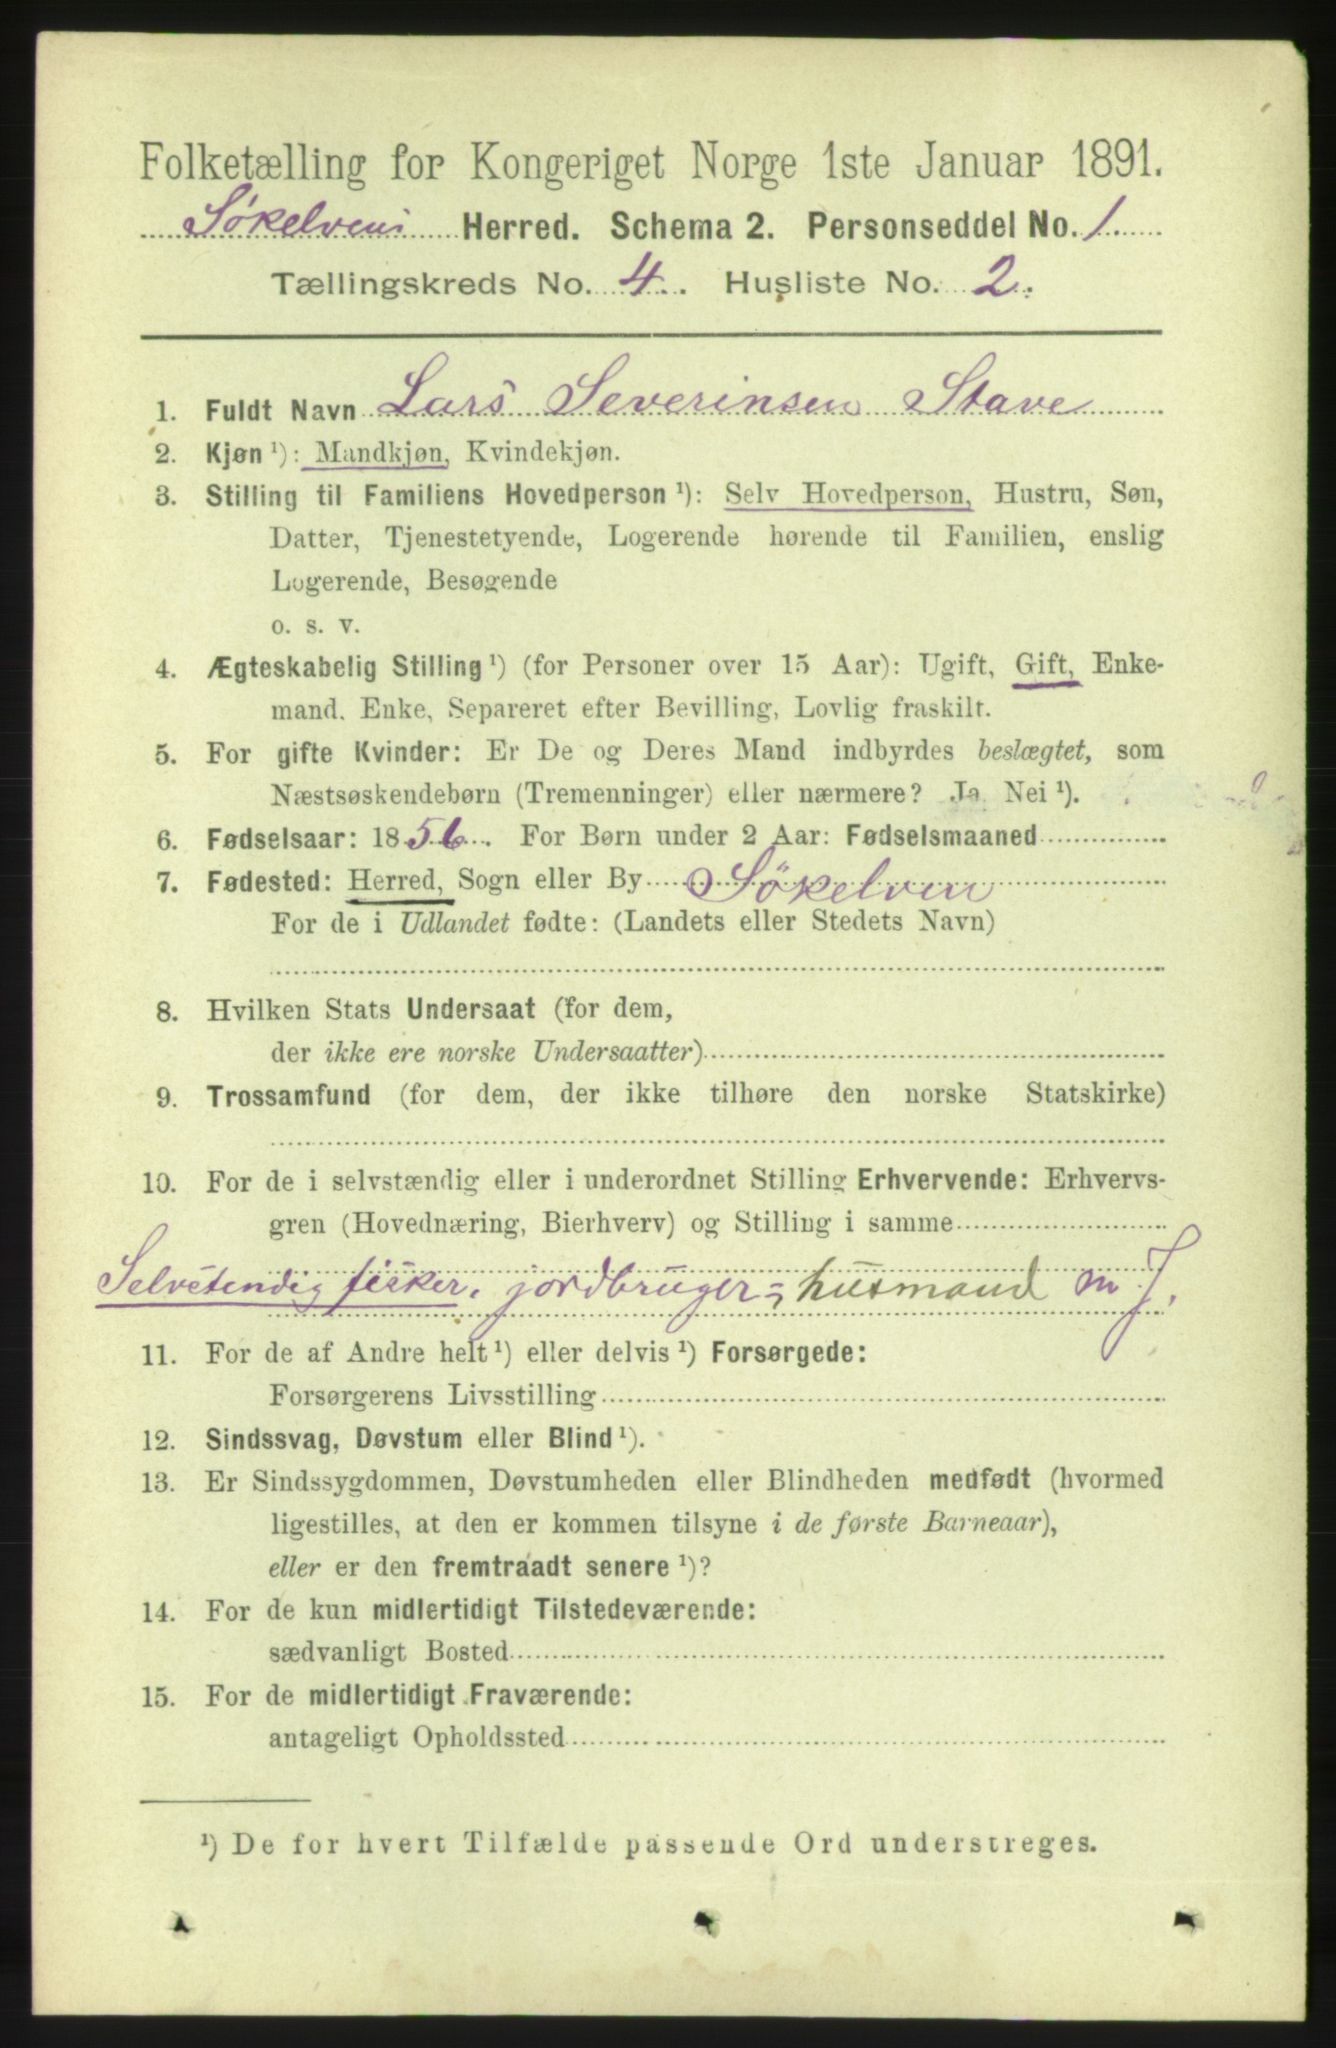 Folketælling for Kongeriget Norge 1ste Januar 1891.
Søkelvens Herred. Schema 2. Personseddel No. 1.
Tællingskreds No. 4. Husliste No. 2.
1. Fuldt Navn Lars Severinsen Stave
2. Kjøn ¹): Mandkjøn, Kvindekjøn.
3. Stilling til Familiens Hovedperson ¹): Selv Hovedperson, Hustru, Søn,
Datter, Tjenestetyende, Logerende hørende til Familien, enslig
Logerende, Besøgende
o. s. v.
4. Ægteskabelig Stilling ¹) (for Personer over 15 Aar): Ugift, Gift, Enke-
mand, Enke, Separeret efter Bevilling, Lovlig fraskilt.
5. For gifte Kvinder: Er De og Deres Mand indbyrdes beslægtet, som
Næstsøskendebørn (Tremenninger) eller nærmere? Ja. Nei ¹).
6. Fødselsaar: 1856. For Børn under 2 Aar: Fødselsmaaned
7. Fødested: Herred, Sogn eller By Søkelven
For de i Udlandet fødte: (Landets eller Stedets Navn)
8. Hvilken Stats Undersaat (for dem,
der ikke ere norske Undersaatter)
9. Trossamfund (for dem, der ikke tilhøre den norske Statskirke)
10. For de i selvstændig eller i underordnet Stilling Erhvervende: Erhvervs-
gren (Hovednæring, Bierhverv) og Stilling i samme
Selvstendig fisker, jordbruger = husmand m J.
11. For de af Andre helt ¹) eller delvis ¹) Forsørgede:
Forsørgerens Livsstilling
12. Sindssvag, Døvstum eller Blind ¹).
13. Er Sindssygdommen, Døvstumheden eller Blindheden medfødt (hvormed
ligestilles, at den er kommen tilsyne i de første Barneaar),
eller er den fremtraadt senere ¹)?
14. For de kun midlertidigt Tilstedeværende:
sædvanligt Bosted
15. For de midlertidigt Fraværende:
antageligt Opholdssted
¹) De for hvert Tilfælde passende Ord understreges.